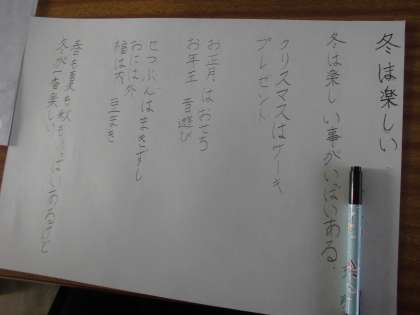 冬は楽しい
冬は楽しい事がいっぱいある。
クリスマスはケーキ
プレゼント
お正月はおこち
お年玉 雪遊び
せつぶんはまきずし
おには外
福は内 豆まき
春も夏も秋も
冬が一番楽しい